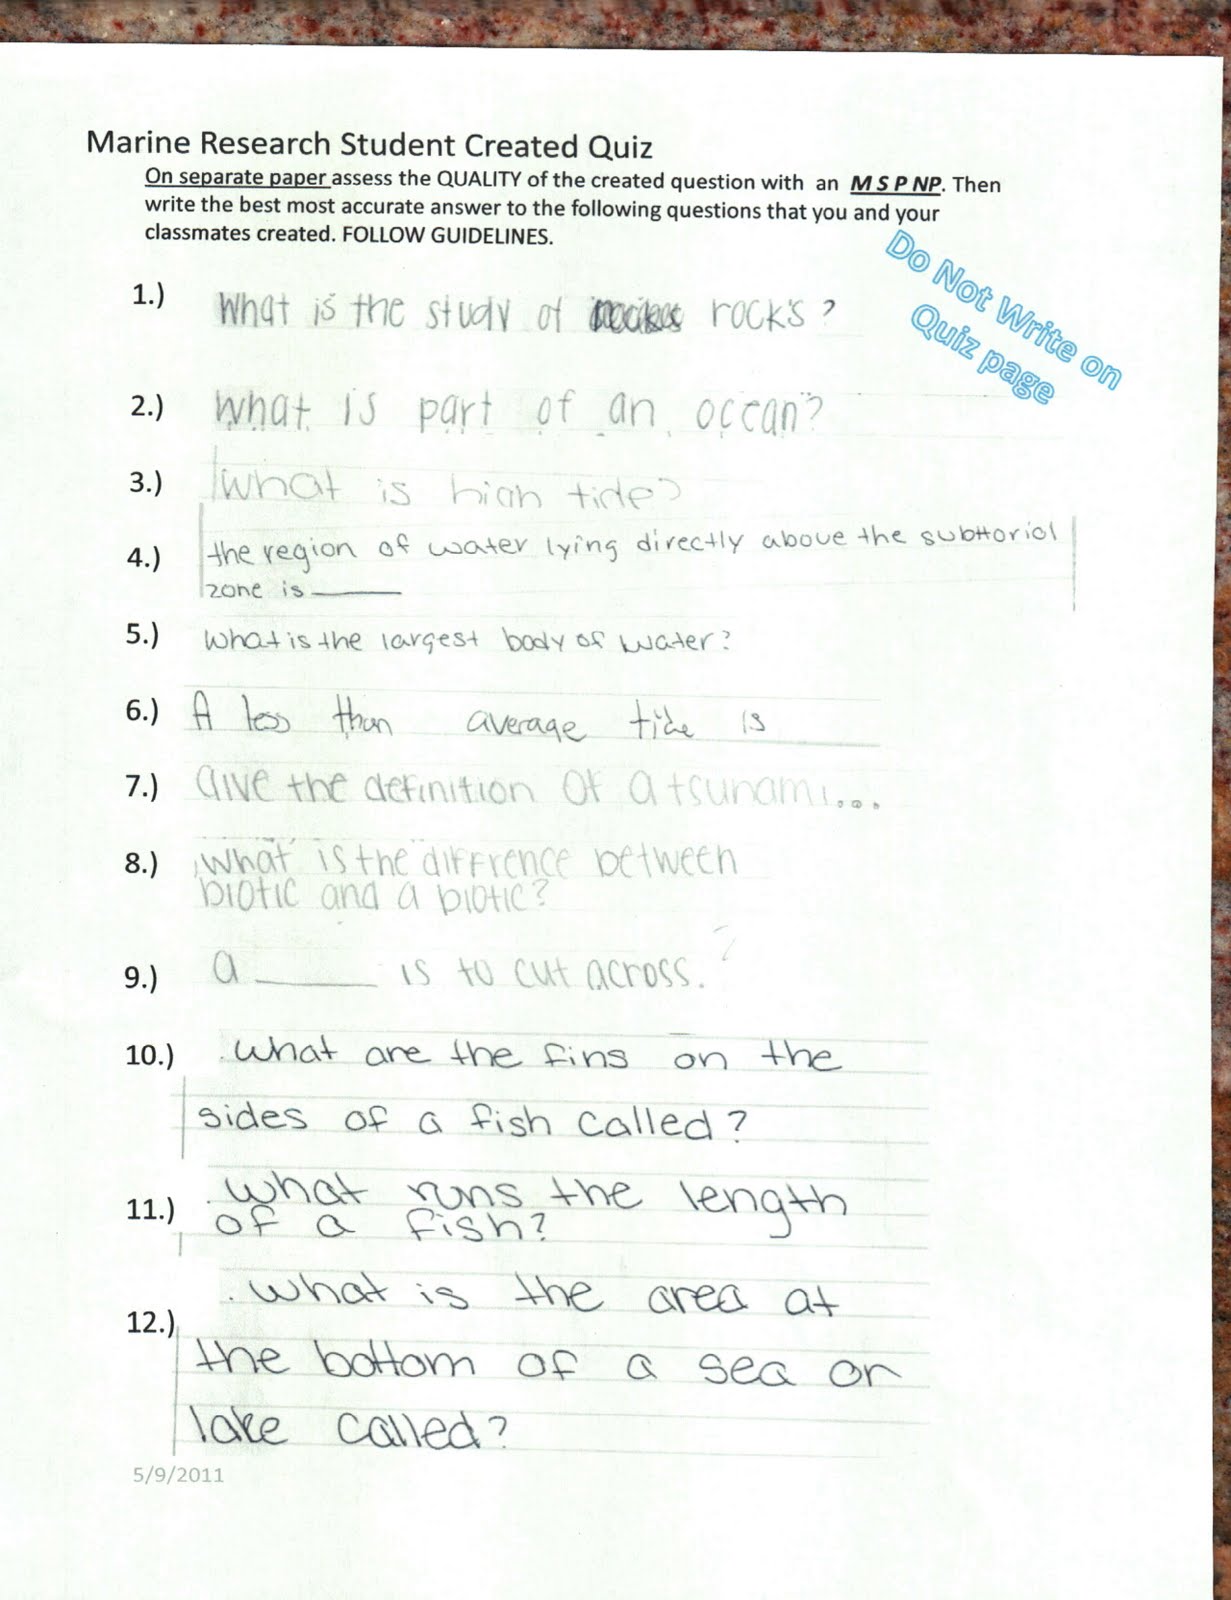 Marine Research Student Created Quiz
On separate paper assess the QUALITY of the created question with an M S P NP. Then
write the best most accurate answer to the following questions that you and your
classmates created. FOLLOW GUIDELINES.
Do Not Write on
Quiz page
1.) What is the study of rocks?
2.) What is part of an ocean?
3.) What is high tide?
4.) the region of water lying directly above the subttoriol
zone is ____
5.) What is the largest body of water?
6.) A less than average tide is ____
7.) Give the definition of a tsunami...
8.) What is the diffrence between
biotic and a biotic?
9.) a ____ is to cut across. ?
10.) What are the fins on the
sides of a fish called?
11.) What runs the length
of a fish?
12.) What is the area at
the bottom of a sea or
lake called?
5/9/2011